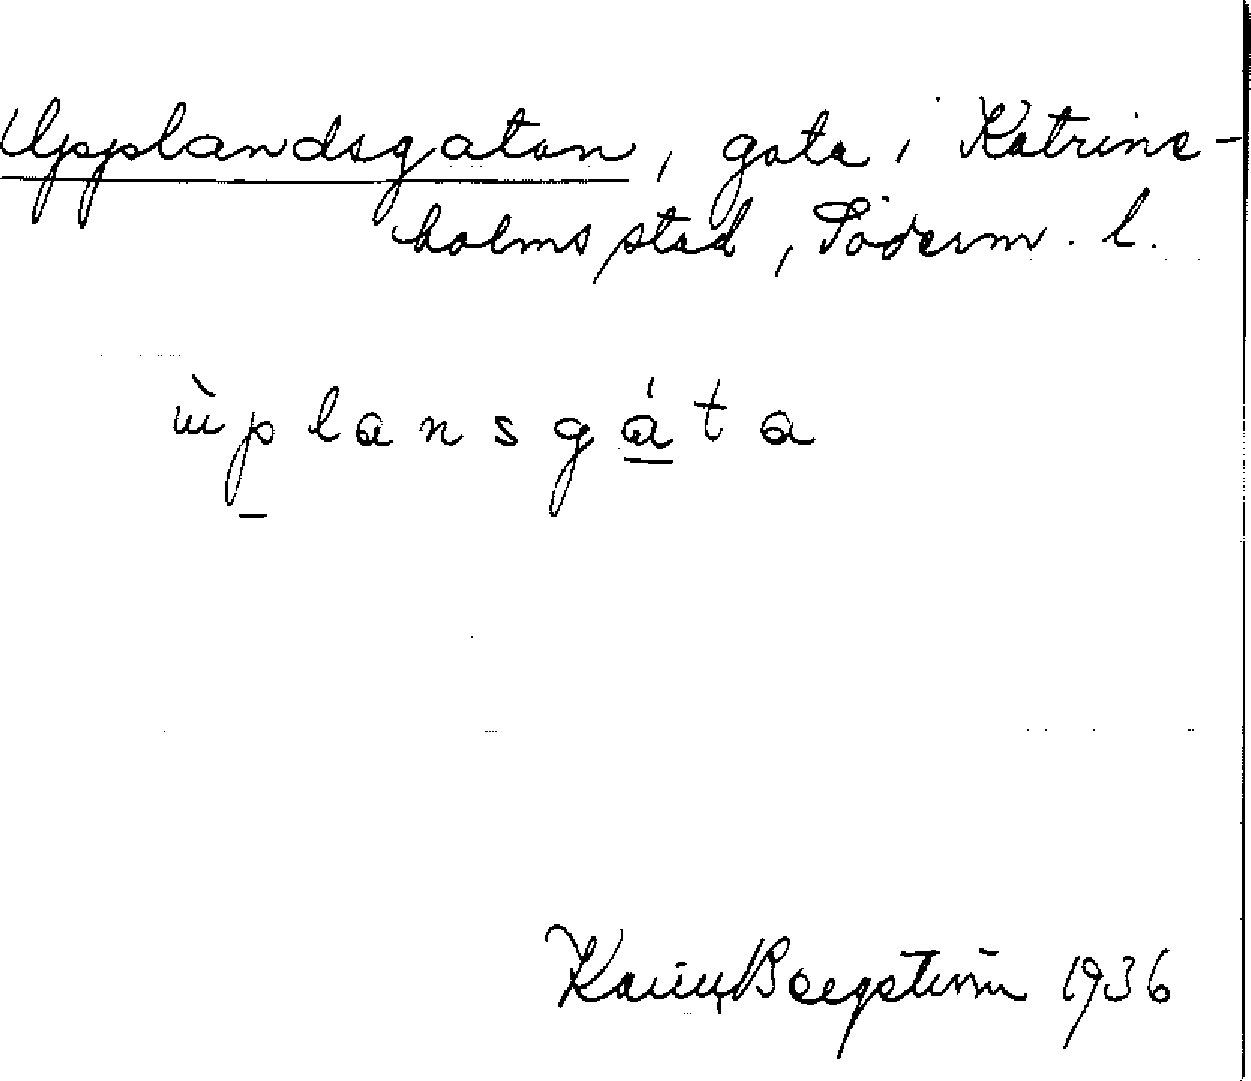 Upplandsgatan, gata i Katrine-
holms stad, Söderm. l.
ùplansgáta
Karin Bergström 1936